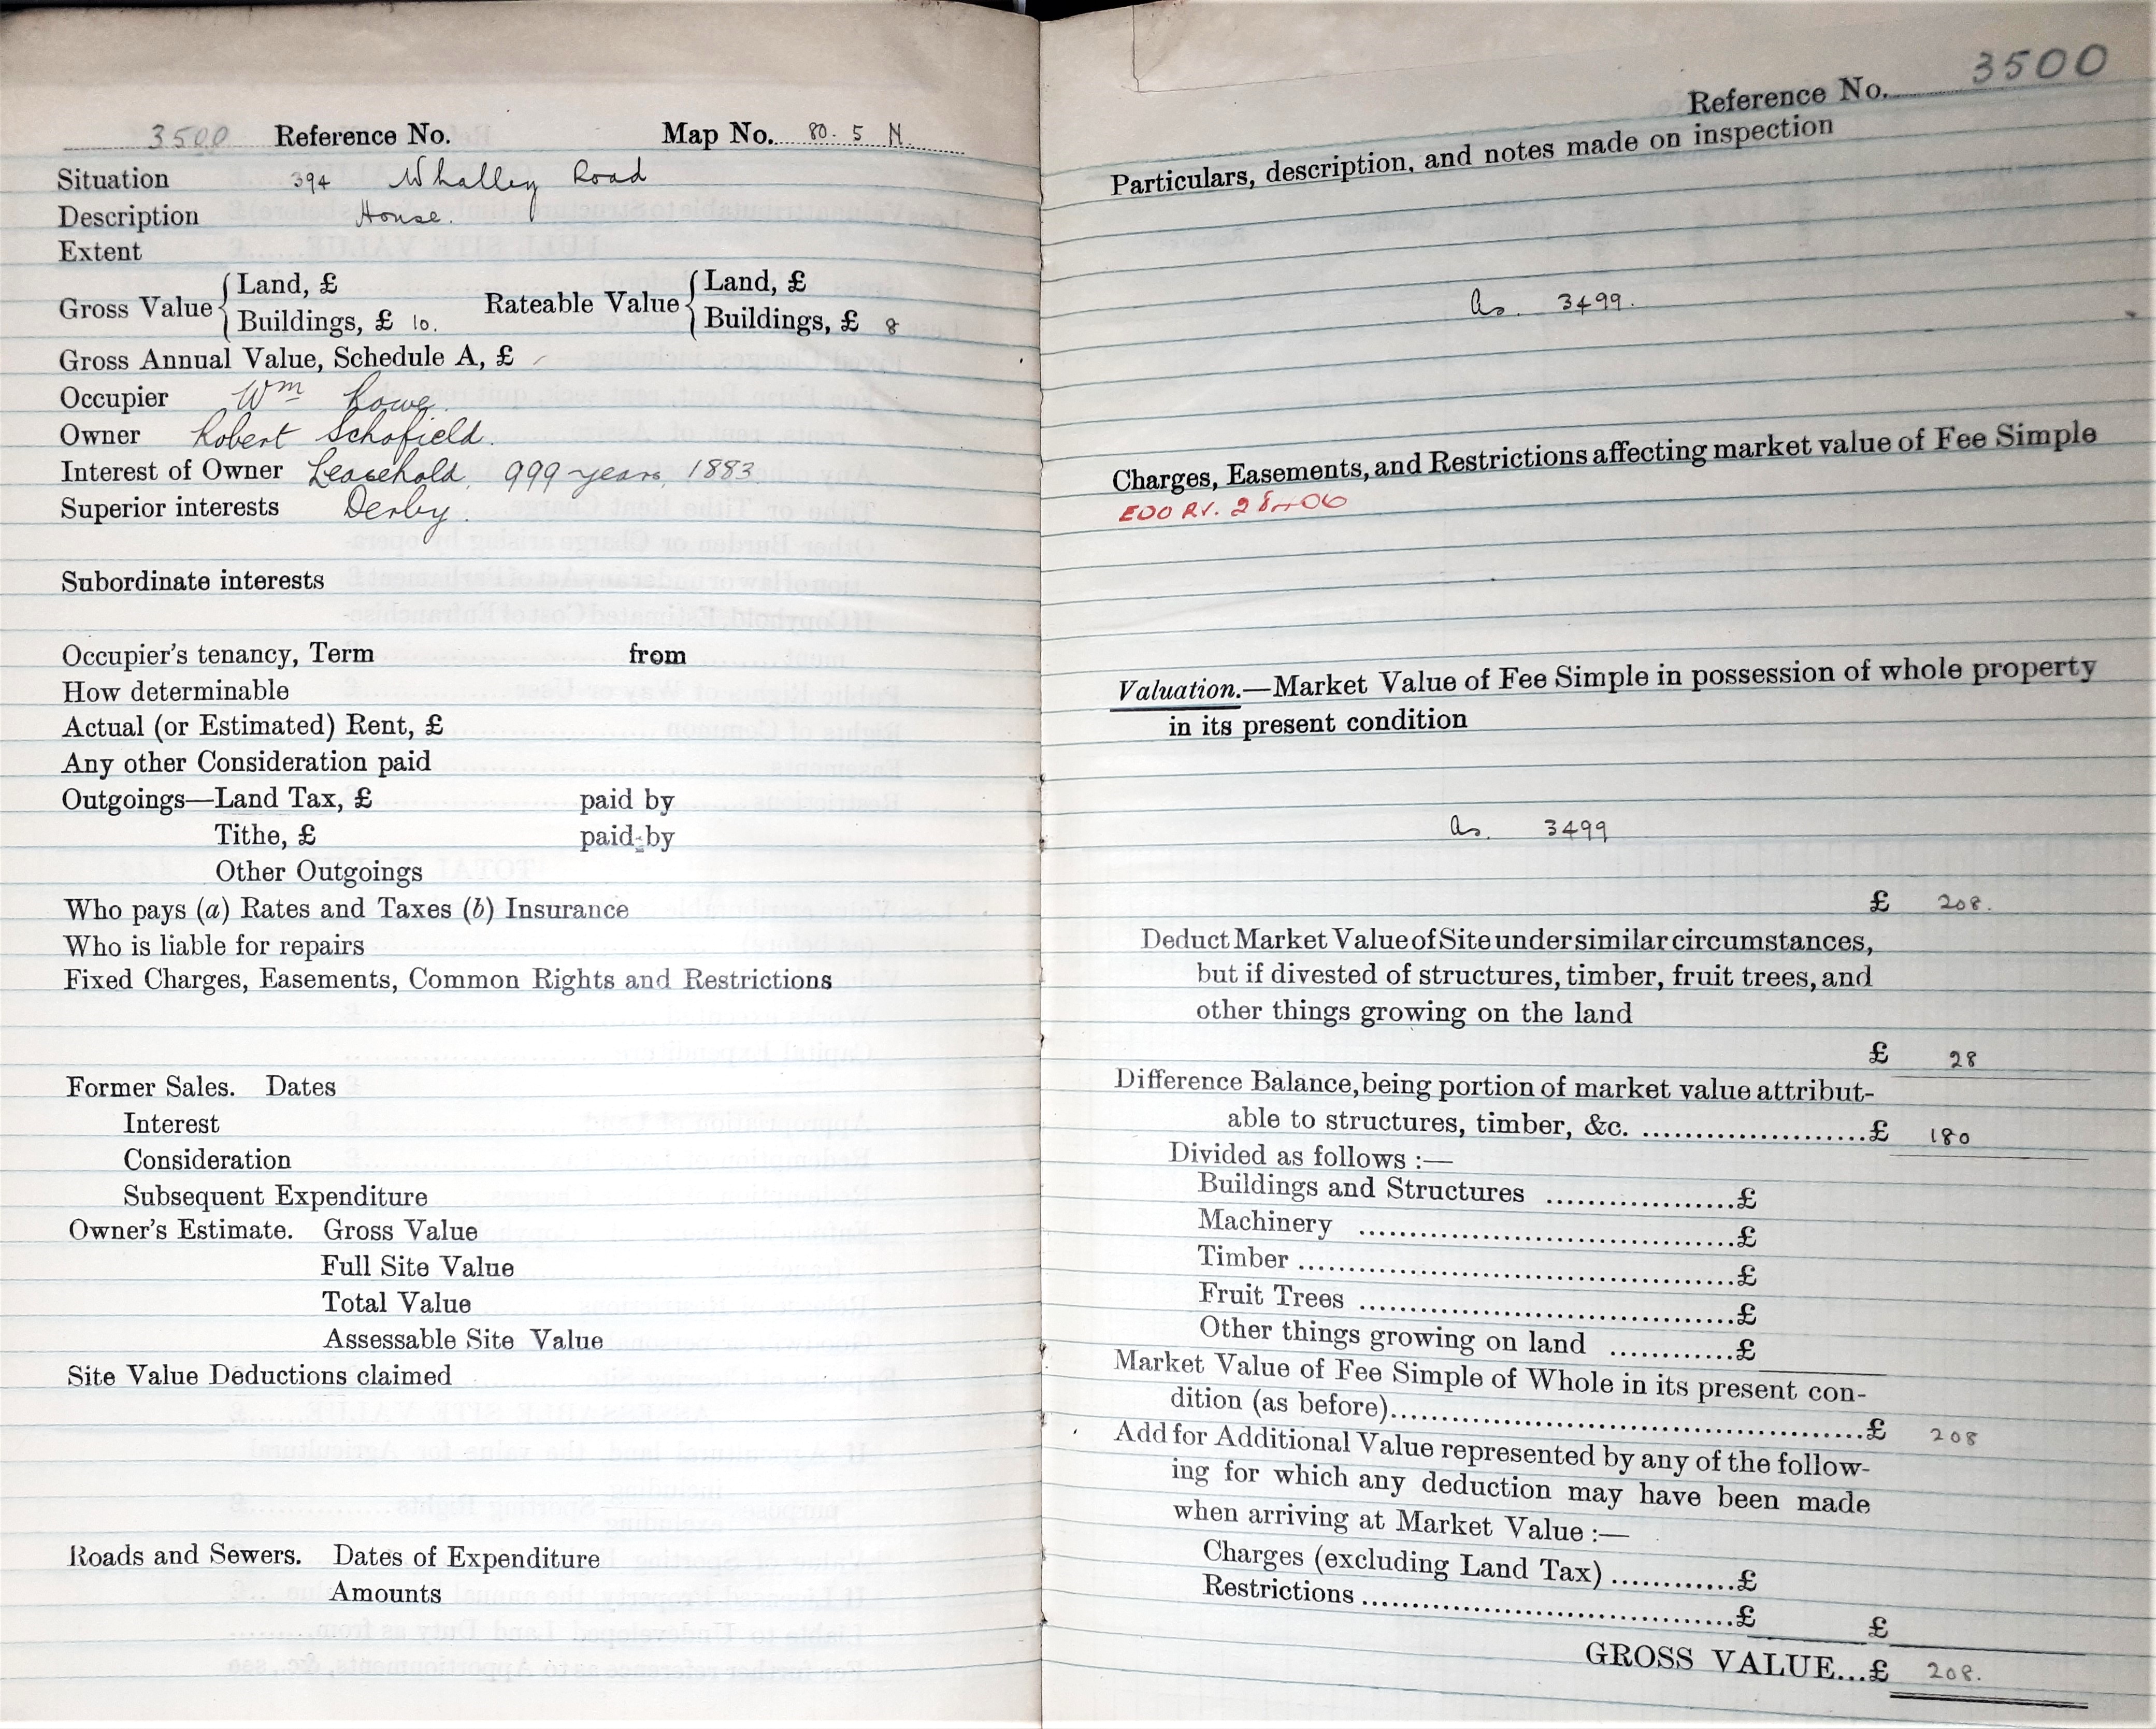 3500 Reference No. Map No. 80. 5 N.
Situation 394 Whalley Road
Description House.
Extent
Gross Value { Land, £ Rateable Value { Land, £
Buildings, £ 10. Buildings, £ 8
Gross Annual Value, Schedule A, £ -
Occupier Wm Rowe.
Owner Robert Schofield.
Interest of Owner Leasehold. 999 years, 1883.
Superior interests Derby.
Subordinate interests
Occupier's tenancy, Term from
How determinable
Actual (or Estimated) Rent, £
Any other Consideration paid
Outgoings—Land Tax, £ paid by
Tithe, £ paid by
Other Outgoings
Who pays (a) Rates and Taxes (b) Insurance
Who is liable for repairs
Fixed Charges, Easements, Common Rights and Restrictions
Former Sales. Dates
Interest
Consideration
Subsequent Expenditure
Owner's Estimate. Gross Value
Full Site Value
Total Value
Assessable Site Value
Site Value Deductions claimed
Roads and Sewers. Dates of Expenditure
Amounts
Reference No. 3500
Particulars, description, and notes made on inspection
As. 3499.
Charges, Easements, and Restrictions affecting market value of Fee Simple
Valuation.—Market Value of Fee Simple in possession of whole property
in its present condition
As. 3499
£ 208.
Deduct Market Value of Site under similar circumstances,
but if divested of structures, timber, fruit trees, and
other things growing on the land
£ 28
Difference Balance, being portion of market value attribut-
able to structures, timber, &c. ......................£ 180
Divided as follows :—
Buildings and Structures ..................£
Machinery ....................................£
Timber ..........................................£
Fruit Trees ....................................£
Other things growing on land ............£
Market Value of Fee Simple of Whole in its present con-
dition (as before)..............................................£ 208
Add for Additional Value represented by any of the follow-
ing for which any deduction may have been made
when arriving at Market Value :—
Charges (excluding Land Tax) ............£
Restrictions ....................................£ £
GROSS VALUE...£ 208.